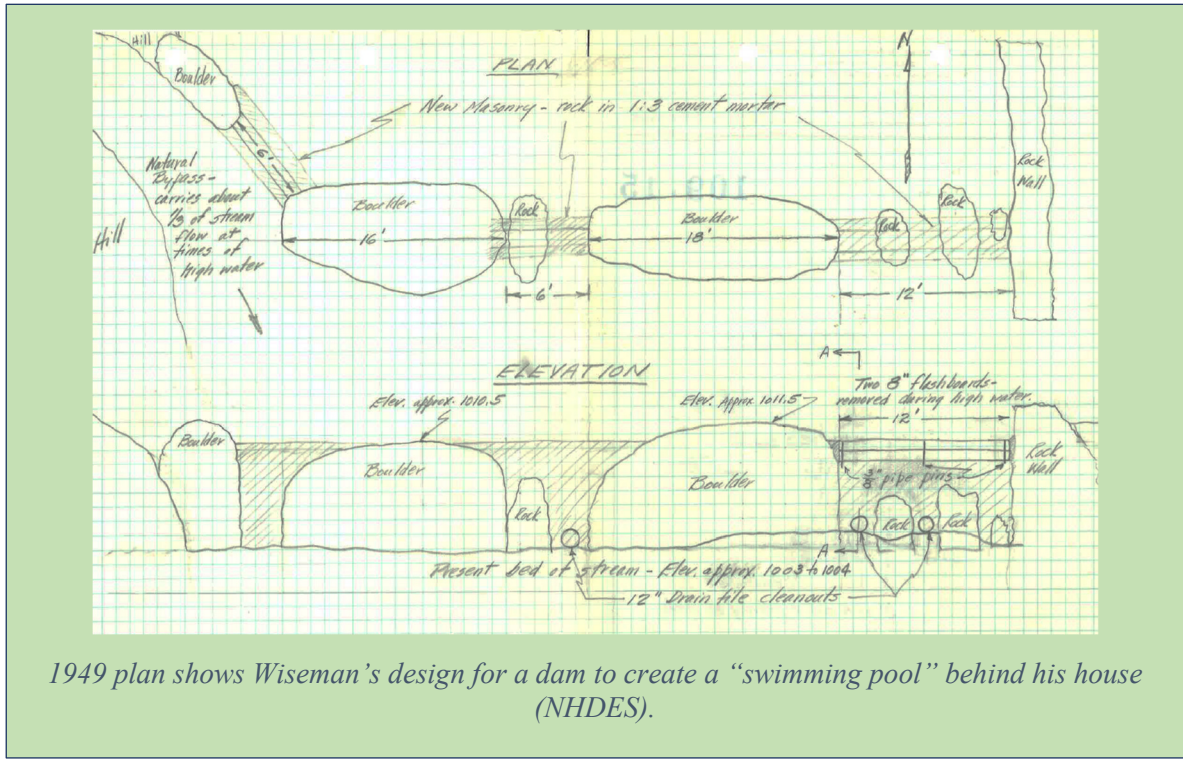 Hill
Boulder
PLAN
N
New Masonry - rock in 1:3 cement mortar
6'
Natural
Bypass-
carries about
1/3 of stream
flow at
times of
high water
Hill
Boulder
16'
Rock
6'
109.15
Boulder
18'
Rock
Rock
12'
Rock
Wall
ELEVATION
A
Elev. approx. 1010.5
Elev. Approx 1011.5
Two 8" flashboards-
removed during high water.
12'
Boulder
Boulder
Rock
Boulder
3/8" pipe pins
Rock
Rock
Rock
Wall
A
Present bed of stream - Elev. approx. 1003 to 1004
12" Drain tile cleanouts
1949 plan shows Wiseman’s design for a dam to create a “swimming pool” behind his house
(NHDES).